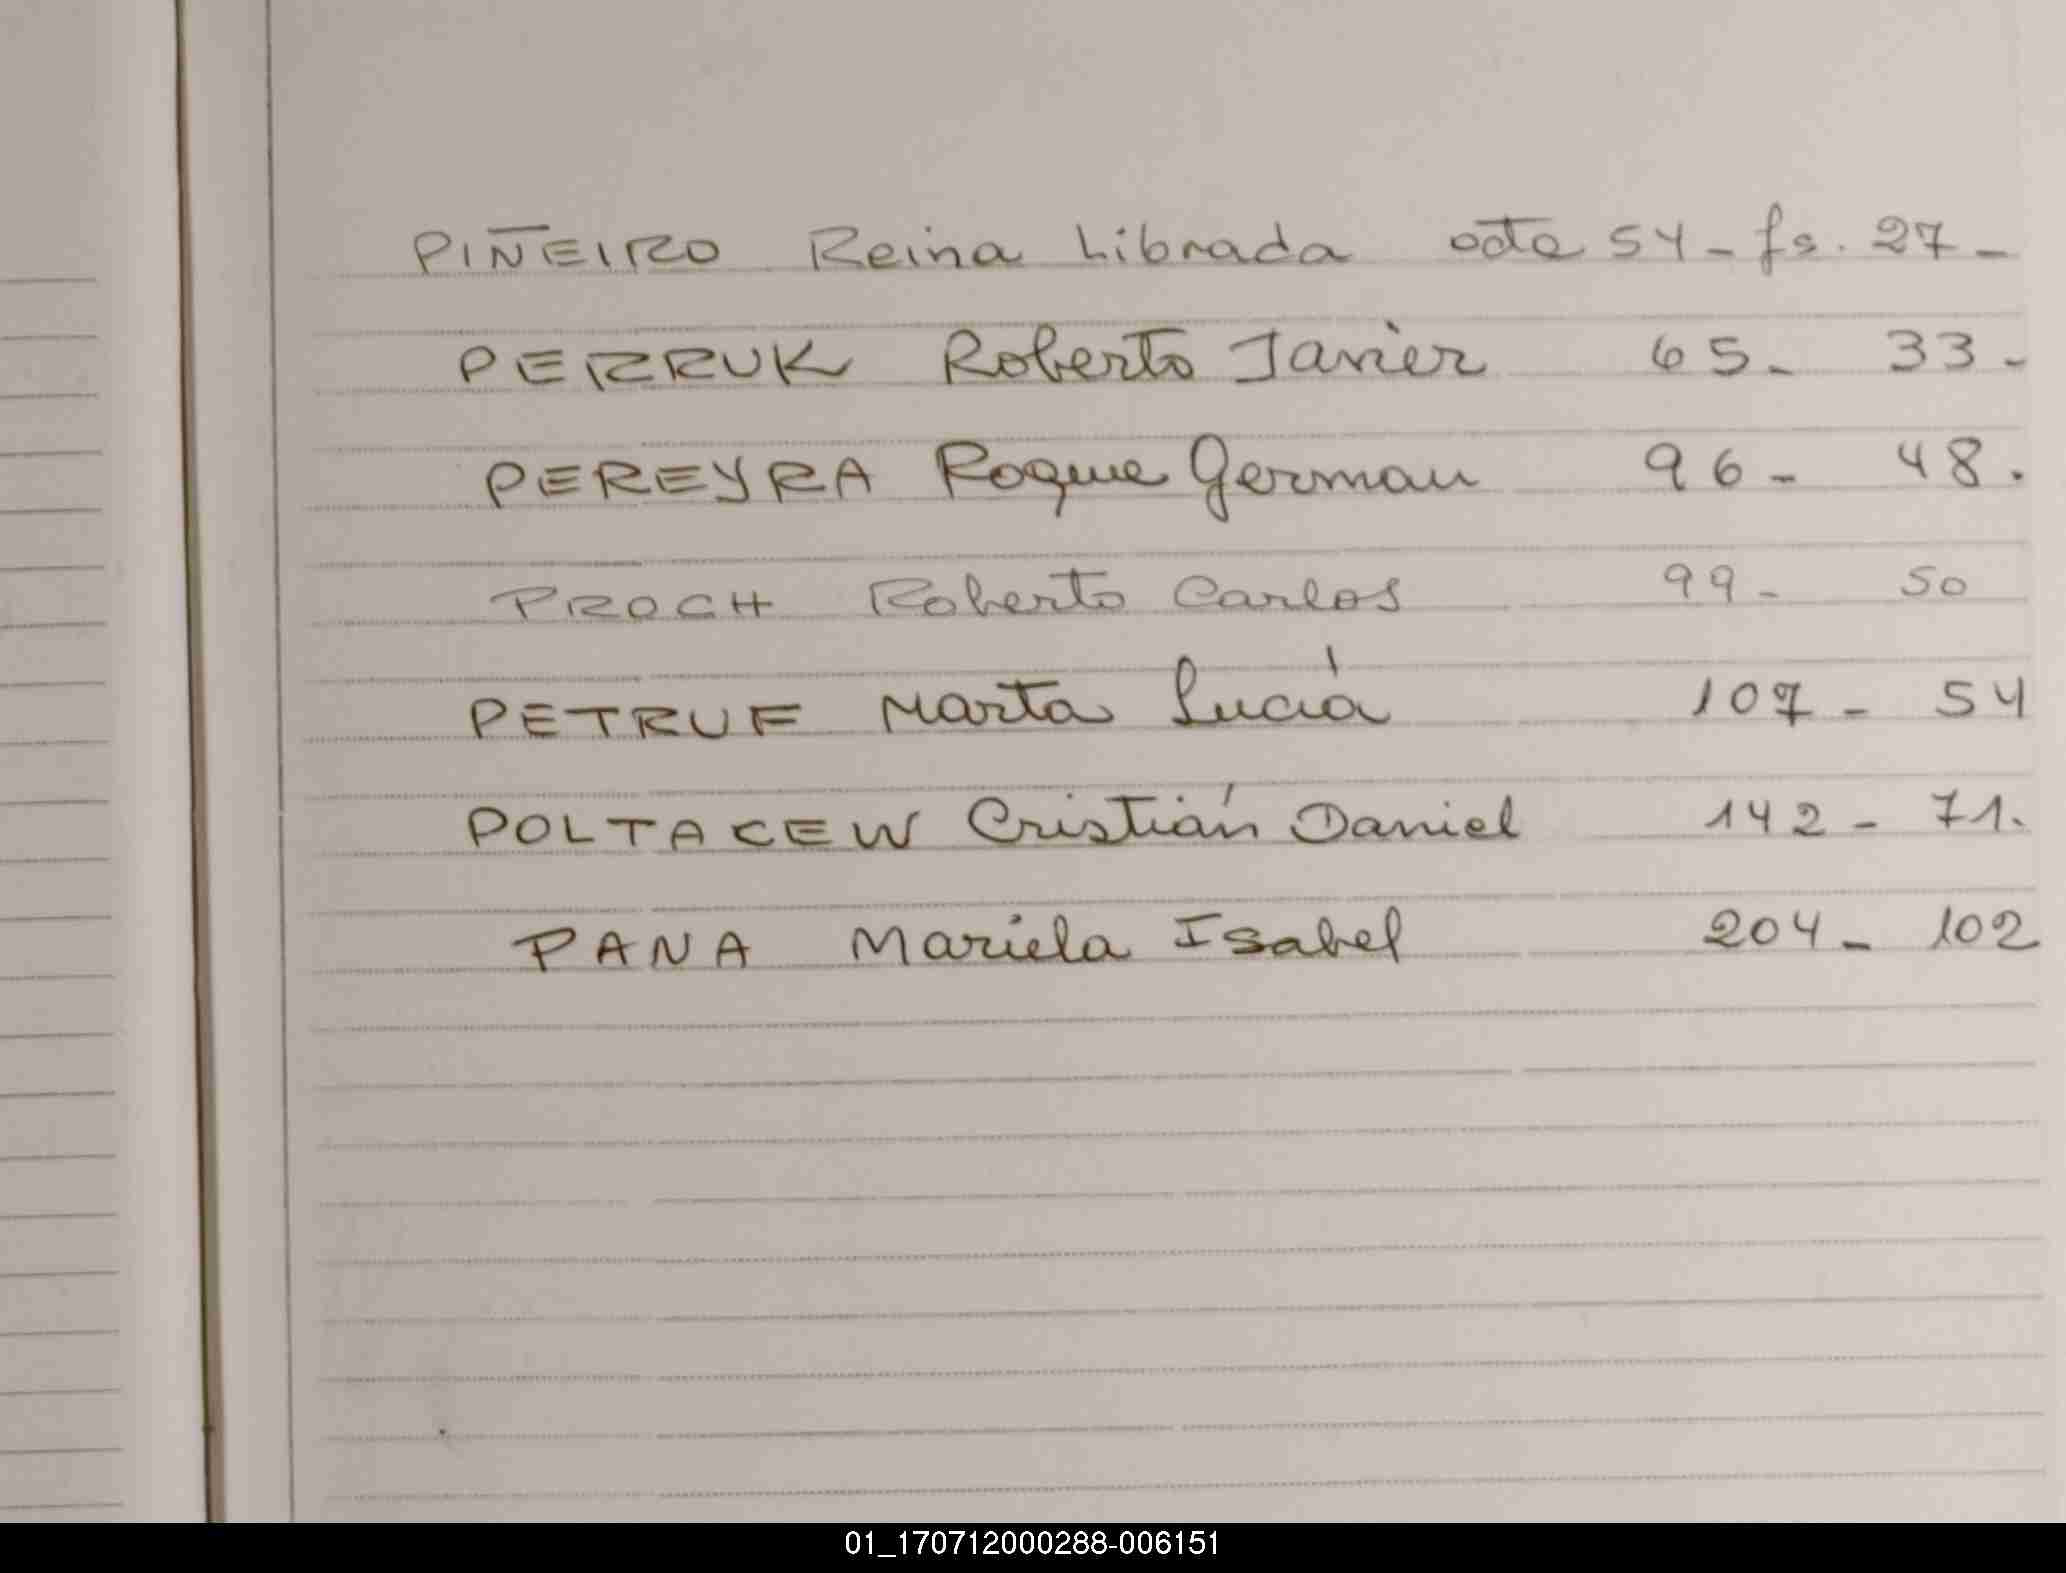 PIÑEIRO Reina Librada acta 54 - fs. 27 -
PERRUK Roberto Javier 65 - 33 -
PEREYRA Roque German 96 - 48.
PROCH Roberto Carlos 99 - 50
PETRUF Marta Lucía 107 - 54
POLTACEW Cristián Daniel 142 - 71.
PANA Mariela Isabel 204 - 102
01_170712000288-006151